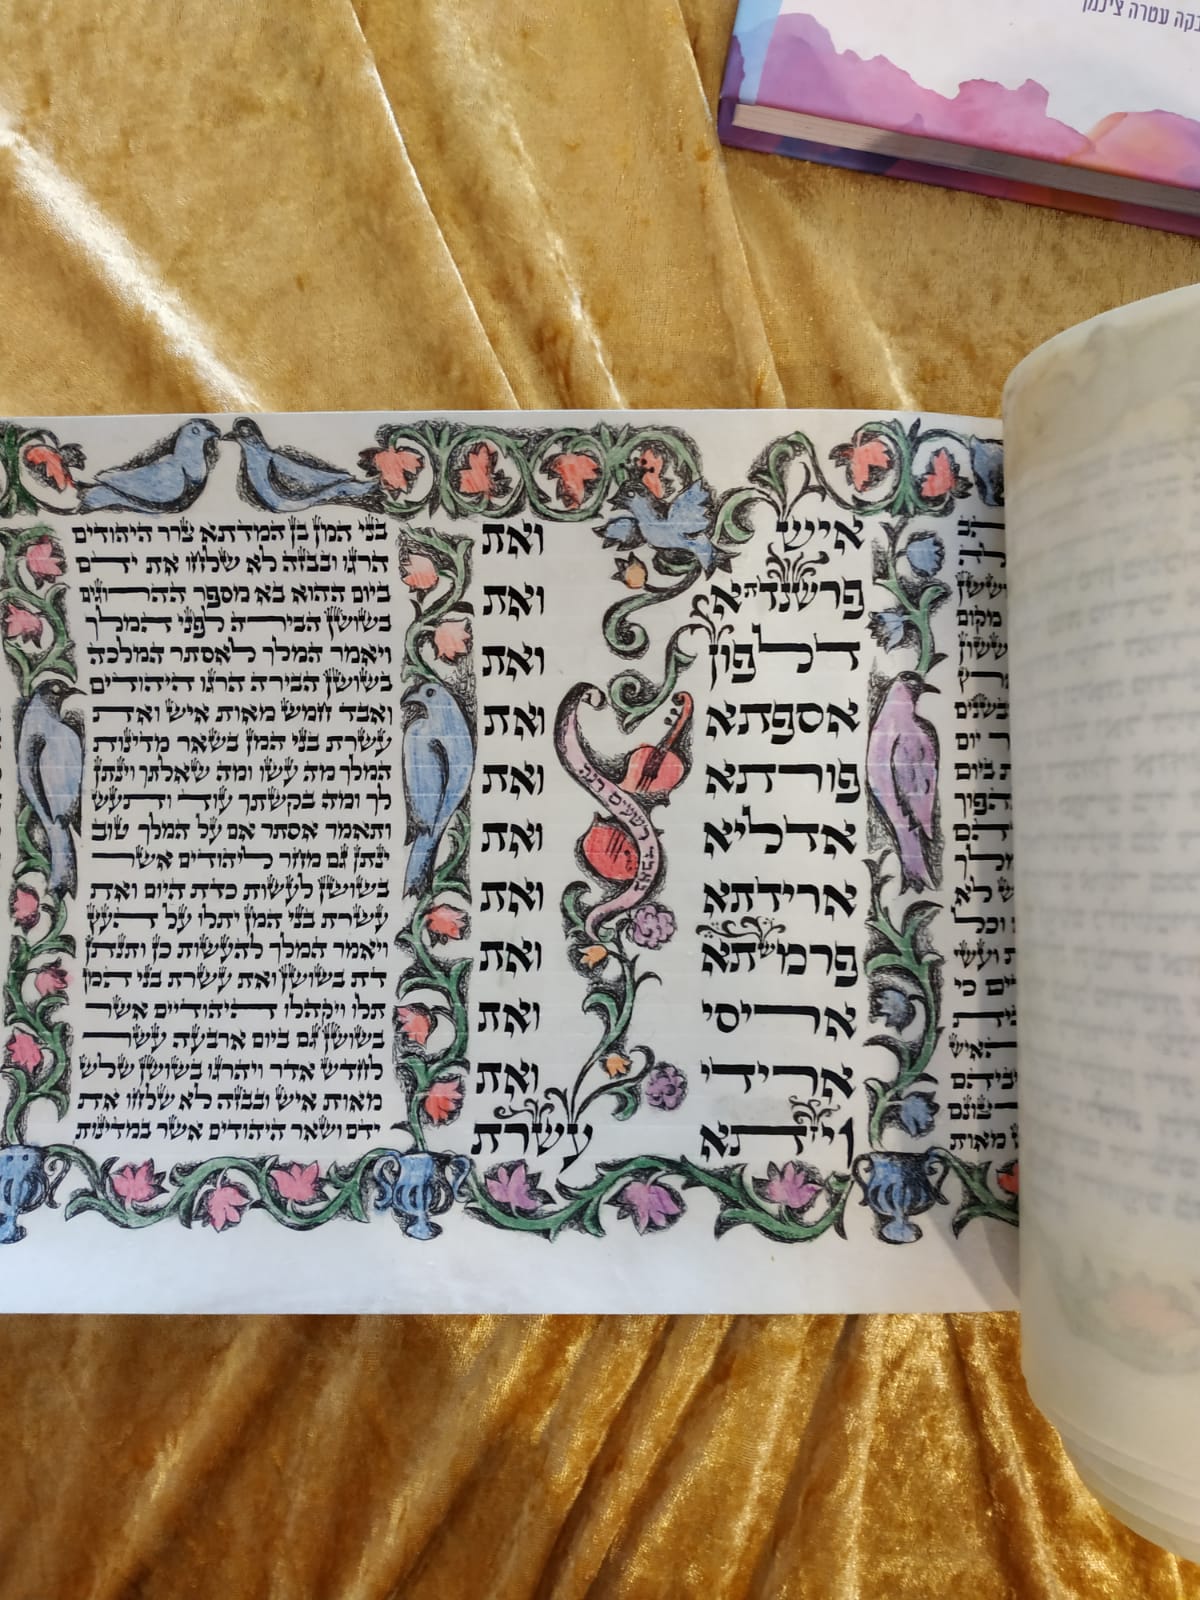 עטרה ציכמן
מקום
יום
ביום
לא
וכל
כי
האיש
מאות
איש ואת
פרשנדתא ואת
דלפון ואת
אספתא ואת
פורתא ואת
אדליא ואת
ארידתא ואת
פרמשתא ואת
אריסי ואת
ארידי ואת
ויזתא עשרת
באבד רשעים רנה
בני המן בן המדתא צרר היהודים
הרגו ובבזה לא שלחו את ידם
ביום ההוא בא מספר ההרוגים
בשושן הבירה לפני המלך
ויאמר המלך לאסתר המלכה
בשושן הבירה הרגו היהודים
ואבד חמש מאות איש ואת
עשרת בני המן בשאר מדינות
המלך מה עשו ומה שאלתך וינתן
לך ומה בקשתך עוד ותעש
ותאמר אסתר אם על המלך טוב
ינתן גם מחר ליהודים אשר
בשושן לעשות כדת היום ואת
עשרת בני המן יתלו על העץ
ויאמר המלך להעשות כן ותנתן
דת בשושן ואת עשרת בני המן
תלו ויקהלו היהודיים אשר
בשושן גם ביום ארבעה עשר
לחדש אדר ויהרגו בשושן שלש
מאות איש ובבזה לא שלחו את
ידם ושאר היהודים אשר במדינות